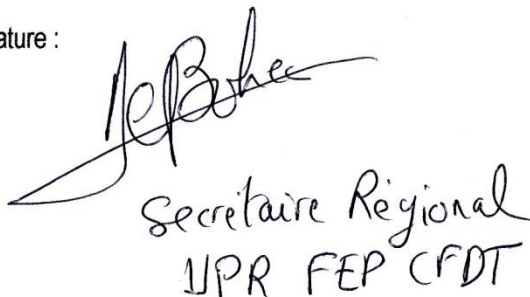 ature :
Secrétaire Régional
UPR FEP CFDT